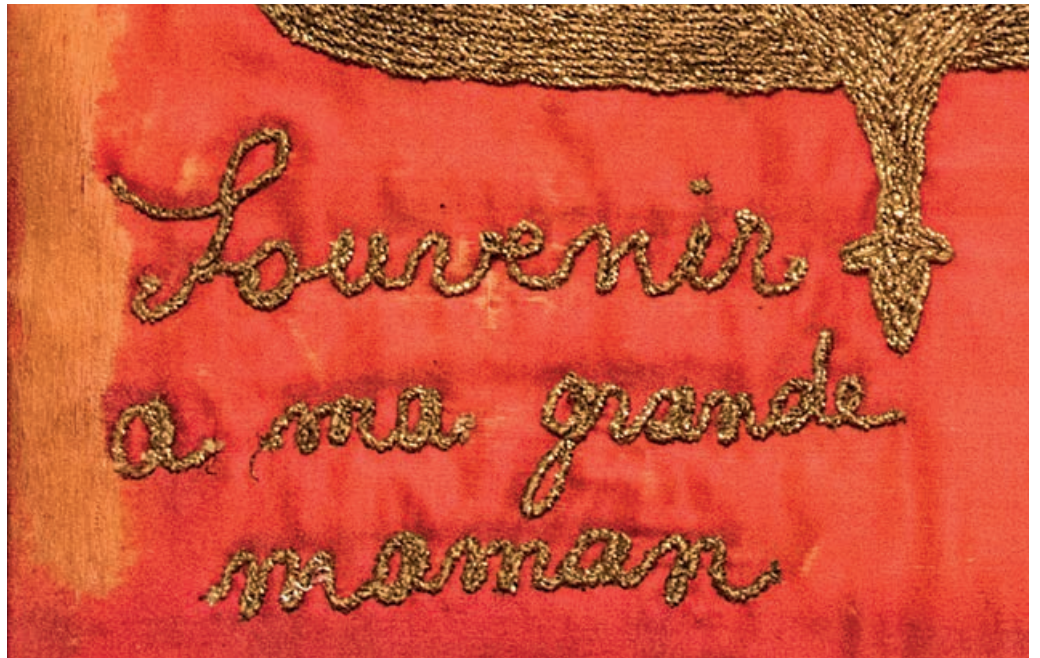 Souvenir
a ma grande
maman